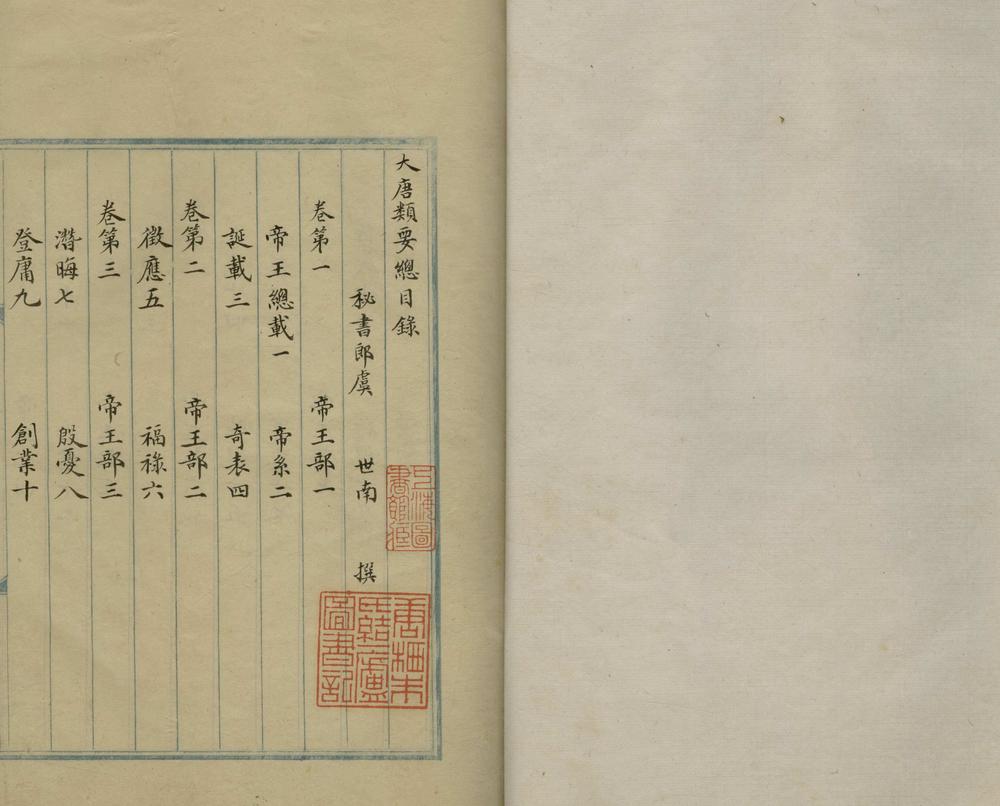 大唐類要總目錄
秘書郎虞 世南 撰
卷第一 帝王部一
帝王總載一 帝系二
誕載三 奇表四
卷第二 帝王部二
徵應五 福祿六
卷第三 帝王部三
潛晦七 殷憂八
登庸九 創業十
唐栖朱
氏結一廬
圖書記